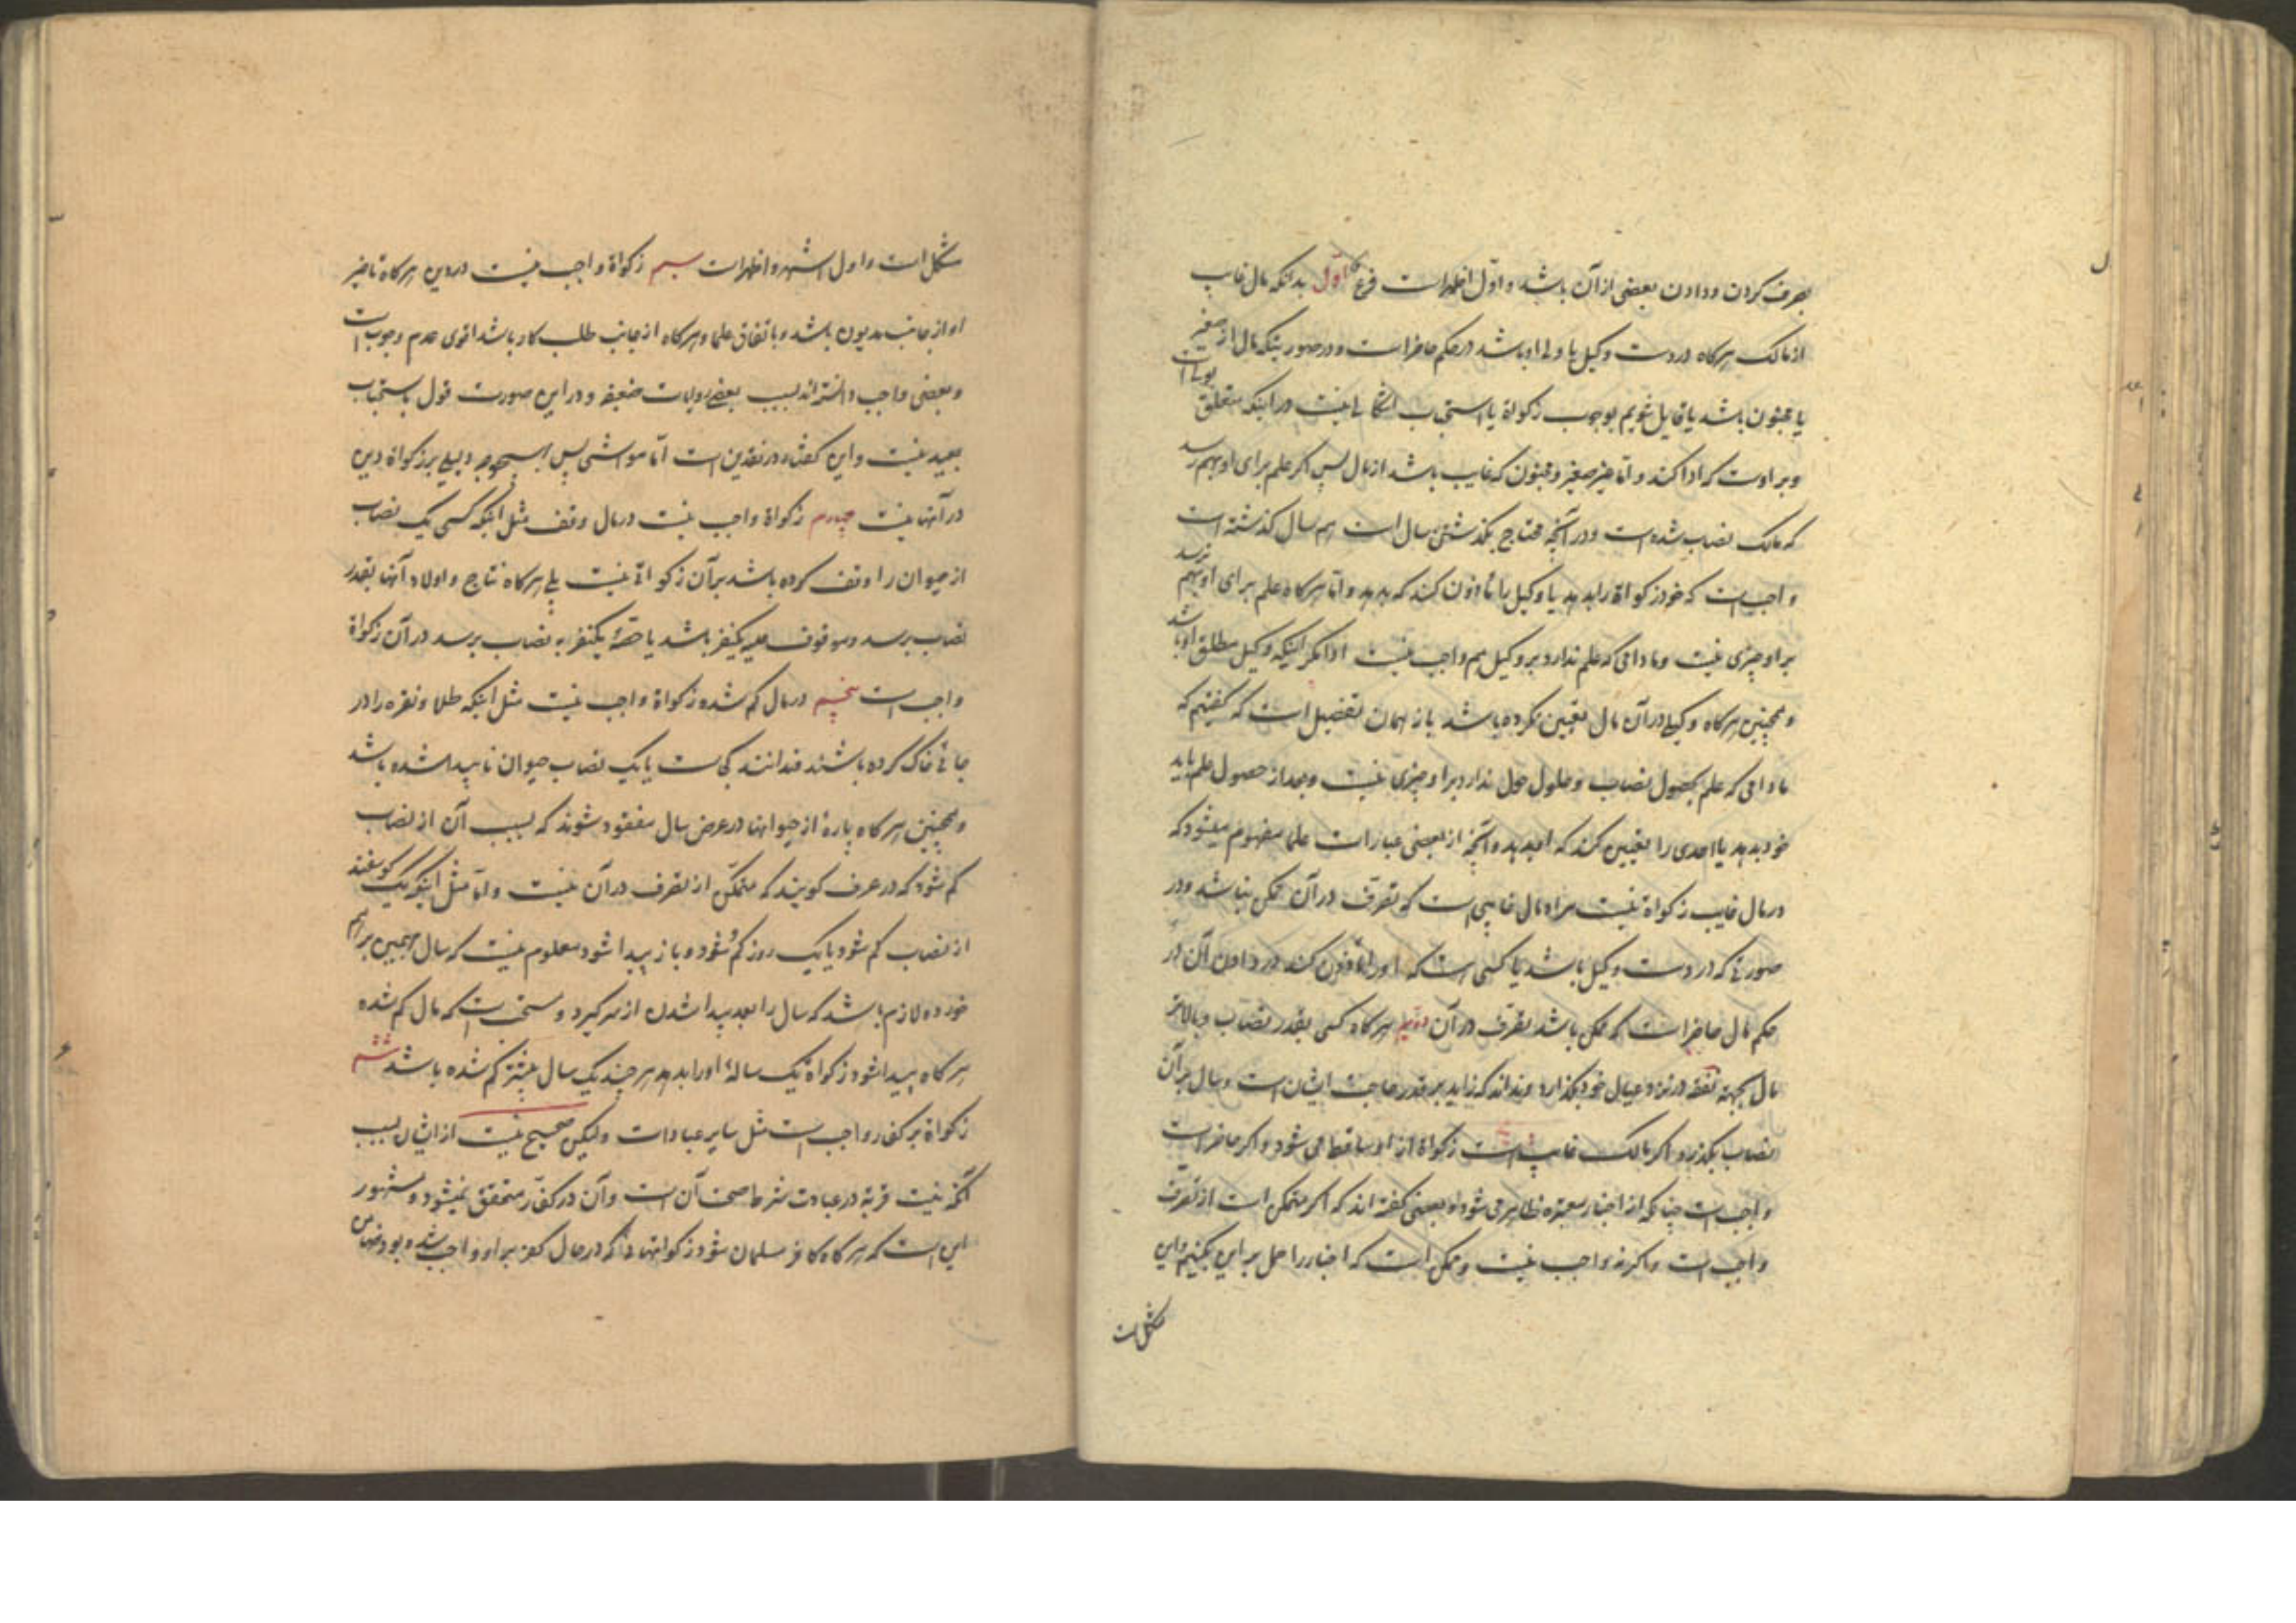 بصرف کردن و دادن بعضی از آن باشد و اوّل اظهر است فرع اوّل بدانکه مال غایب
از مالک هرگاه در دست وکیل یا ولی او باشد در حکم حاضر است و در صورتیکه مال از صغیر
یا مجنون باشد یا قایل شویم بوجوب زکوة یا استحباب اشکالی نیست در اینکه متعلق بولی است
و بر اوست که ادا کند و امّا غیر صغیر و مجنون که غایب باشد از مال پس اگر علم برای او بهم رسد
که مالک نصاب شده است و در آنچه محتاج بگذشتن سال است هم سال گذشته است
واجب است که خود زکوة را بدهد یا وکیل را مأذون کند که بدهد و امّا هرگاه علم برای او بهم نرسد
بر او چیزی نیست و مادامی که علم ندارد بر وکیل هم واجب نیست ادا مگر اینکه وکیل مطلق او باشد
و همچنین هرگاه وکیلی در آن مال تعیین نکرده باشد باز همان تفصیل است که گفتیم که
مادامی که علم بحصول نصاب و حلول حول ندارد بر او چیزی نیست و بعد از حصول علم باید
خود بدهد یا احدی را تعیین کند که او بدهد و آنچه از بعضی عبارات علما مفهوم میشود که
در مال غایب زکوة نیست مراد مال غایبی است که تصرّف در آن ممکن نباشد و در
صورتی که در دست وکیل باشد یا کسی است که او را مأذون کند در دادن آن در
حکم مال حاضر است که ممکن باشد تصرف در آن دویم هرگاه کسی بقدر نصاب و بالاتر
مال بجهة نفقه در نزد عیال خود بگذارد و نداند که زاید بر قدر حاجت ایشان است و سال بر آن
نصاب بگذرد اگر مالک غایب است زکوة از او ساقط می شود و اگر حاضر است
واجب است چنانکه از اخبار معتبره ظاهر می شود و بعضی گفته اند که اگر متمکن است از تصرّف
واجب است و اگر نه واجب نیست و ممکن است که اخبار را حمل بر این کنیم و این
مشکل است
مشکل است و اول اشهر و اظهر است سیم زکوة واجب نیست در دین هرگاه تاخیر
او از جانب مدیون باشد و باتفاق علما و هرگاه از جانب طلب کار باشد اقوی عدم وجوب است
و بعضی واجب دانسته اند بسبب بعضی روایات ضعیفه و در این صورت قول باستحباب
بعید نیست و این گفتگو در نقدین است امّا مواشی پس بهیچ وجه دلیلی بر زکوة دین
در آنها نیست چهارم زکوة واجب نیست در مال وقف مثل اینکه کسی یک نصاب
از حیوان را وقف کرده باشد بر آن زکواتی نیست بلی هرگاه نتاج و اولاد آنها بقدر
نصاب برسد و موقوف علیه یکنفر باشد یا حصّۀ یکنفر به نصاب برسد در آن زکوة
واجب است پنجم در مال گم شده زکوة واجب نیست مثل اینکه طلا و نقره را در
جائی خاک کرده باشند و ندانند کجاست یا یک نصاب حیوان ناپیدا شده باشد
و همچنین هرگاه پارۀ از حیوانها در عرض سال مفقود شوند که بسبب آن از نصاب
کم شود که در عرف گویند که متمکّن از تصرف در آن نیست و امّا مثل اینکه یک گوسفند
از نصاب کم شود یا یک روز گم شود و باز پیدا شود معلوم نیست که سال بهمین بر هم
خورده لازم باشد که سال را بعد پیدا شدن از سر گیرد و سنّت است که مال گم شده
هرگاه پیدا شود زکوة یک سالۀ او را بدهد هر چند یک سال بیشتر گم شده باشد ششم
زکوة بر کفّار واجب است مثل سایر عبادات ولیکن صحیح نیست از ایشان بسبب
آنکه نیّت قربة در عبادت شرط صحت آن است و آن در کفّار متحقق نمیشود و مشهور
این است که هرگاه کافر مسلمان شود زکواتهائی که در حال کفر بر او واجب شده بود ضامن